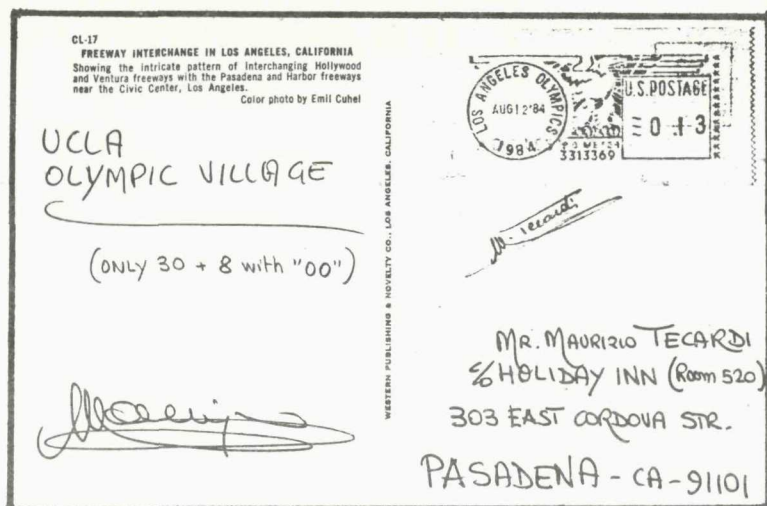 CL-17
FREEWAY INTERCHANGE IN LOS ANGELES, CALIFORNIA
Showing the intricate pattern of interchanging Hollywood
and Ventura freeways with the Pasadena and Harbor freeways
near the Civic Center, Los Angeles.
Color photo by Emil Cuhel
UCLA
OLYMPIC VILLAGE
(ONLY 30 + 8 with "00")
WESTERN PUBLISHING & NOVELTY CO., LOS ANGELES, CALIFORNIA
LOS ANGELES OLYMPICS
AUG 12 '84
1984
U.S. POSTAGE
0 13
3313369
MR. MAURIZIO TECARDI
c/o HOLIDAY INN (Room 520)
303 EAST CORDOVA STR.
PASADENA - CA - 91101